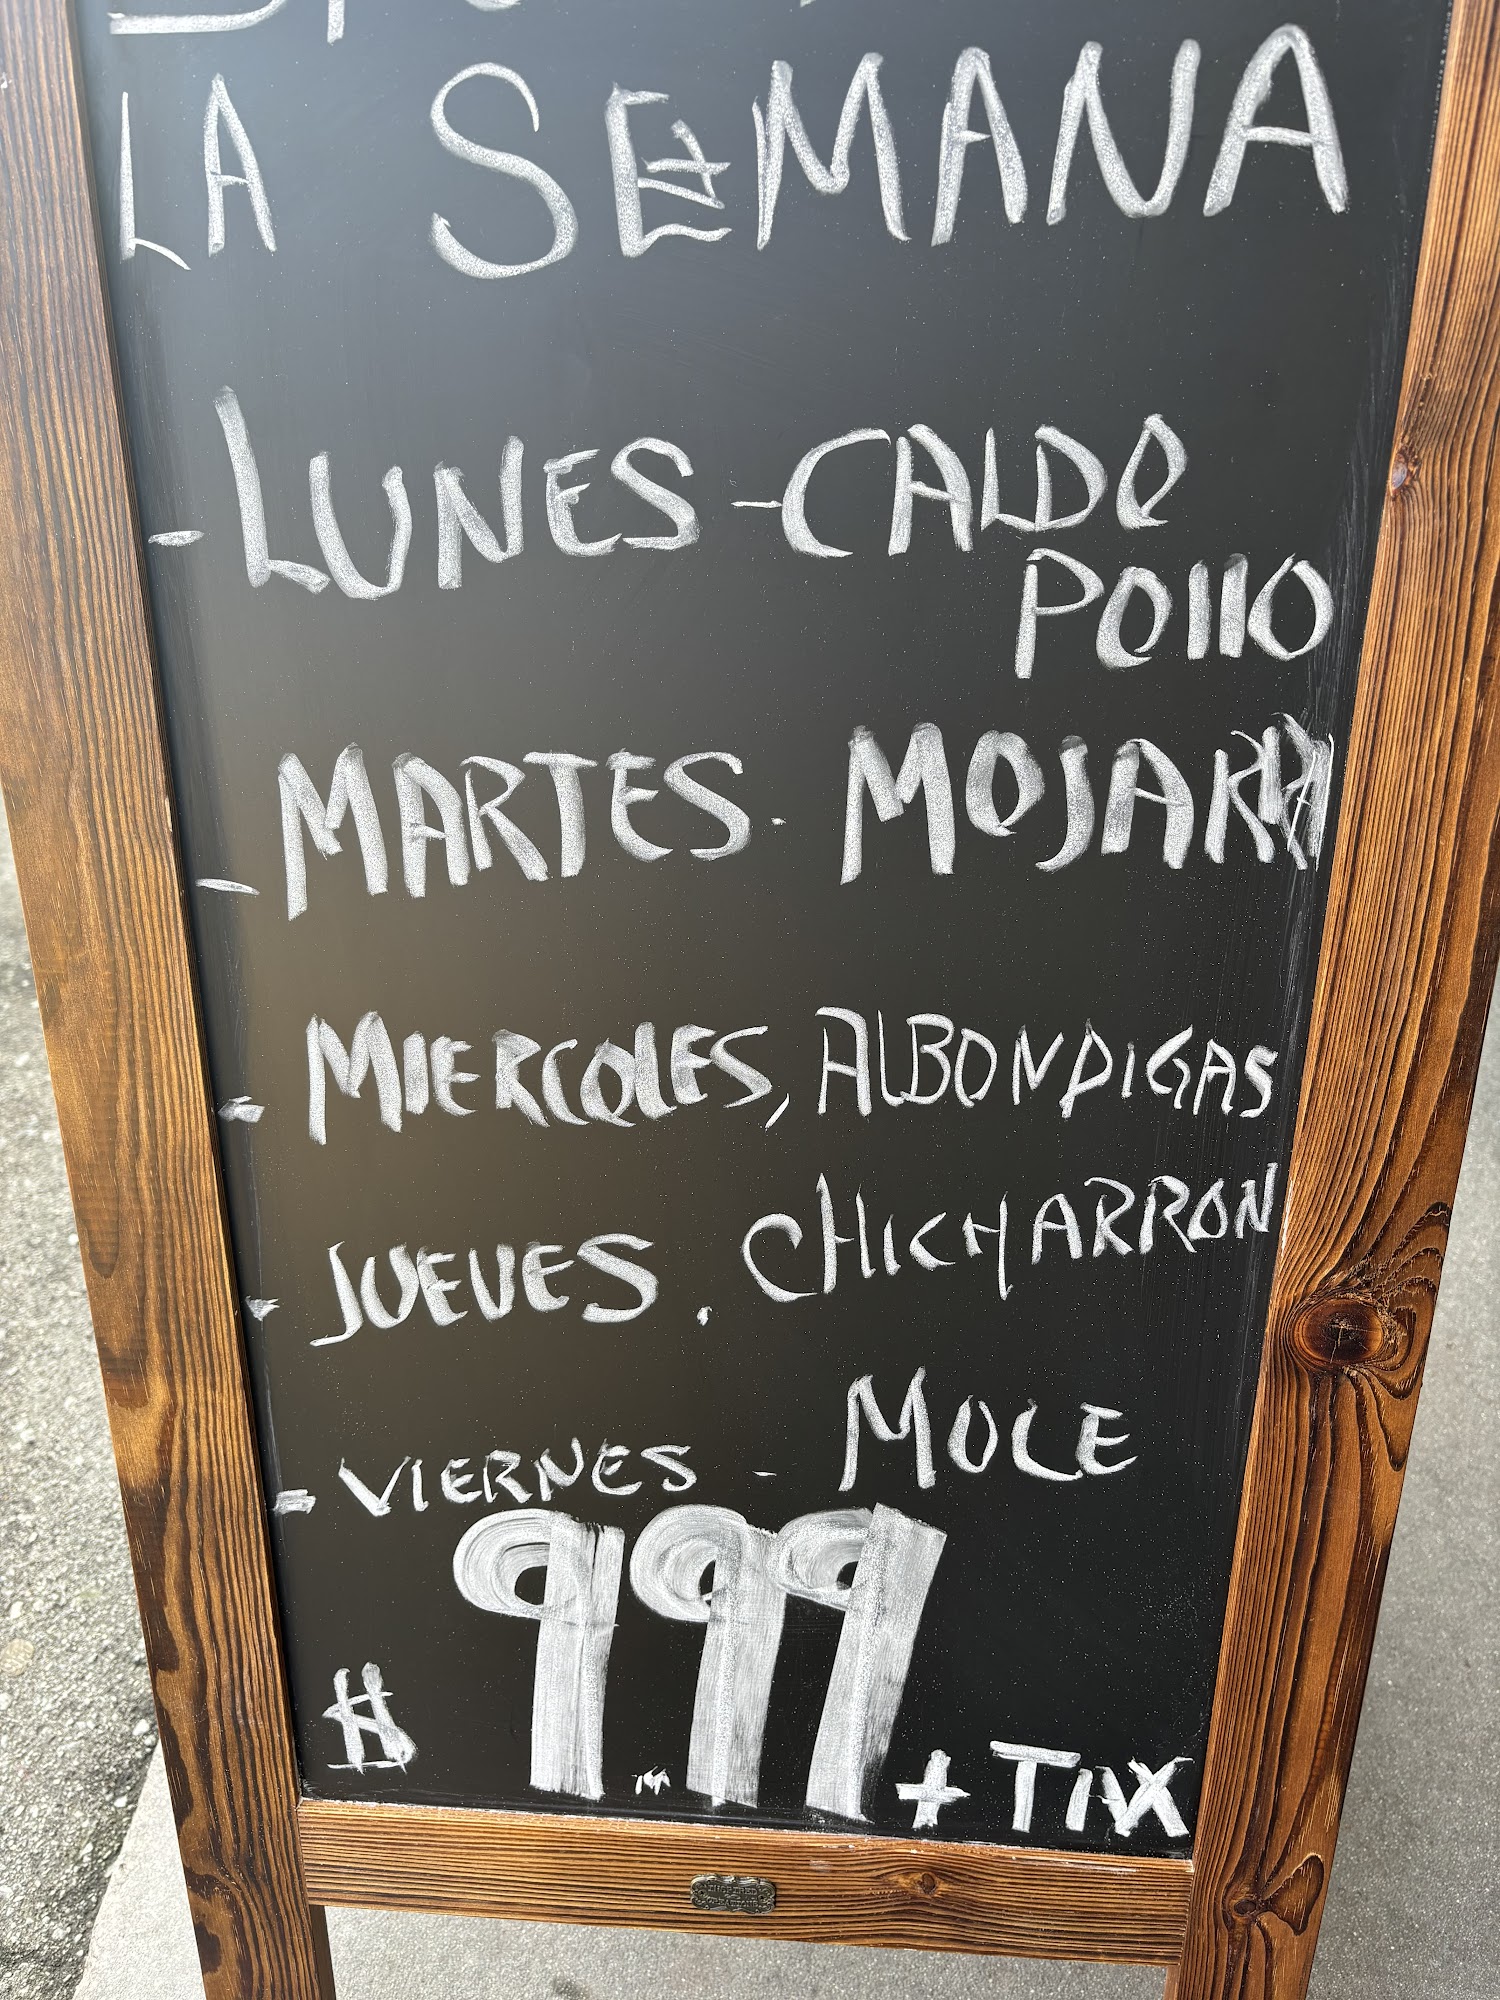 LA SEMANA
- LUNES - CALDO
POLLO
- MARTES. MOJARRA
- MIERCOLES, ALBONDIGAS
- JUEVES. CHICHARRON
- VIERNES - MOLE
$ 9.99 + TAX